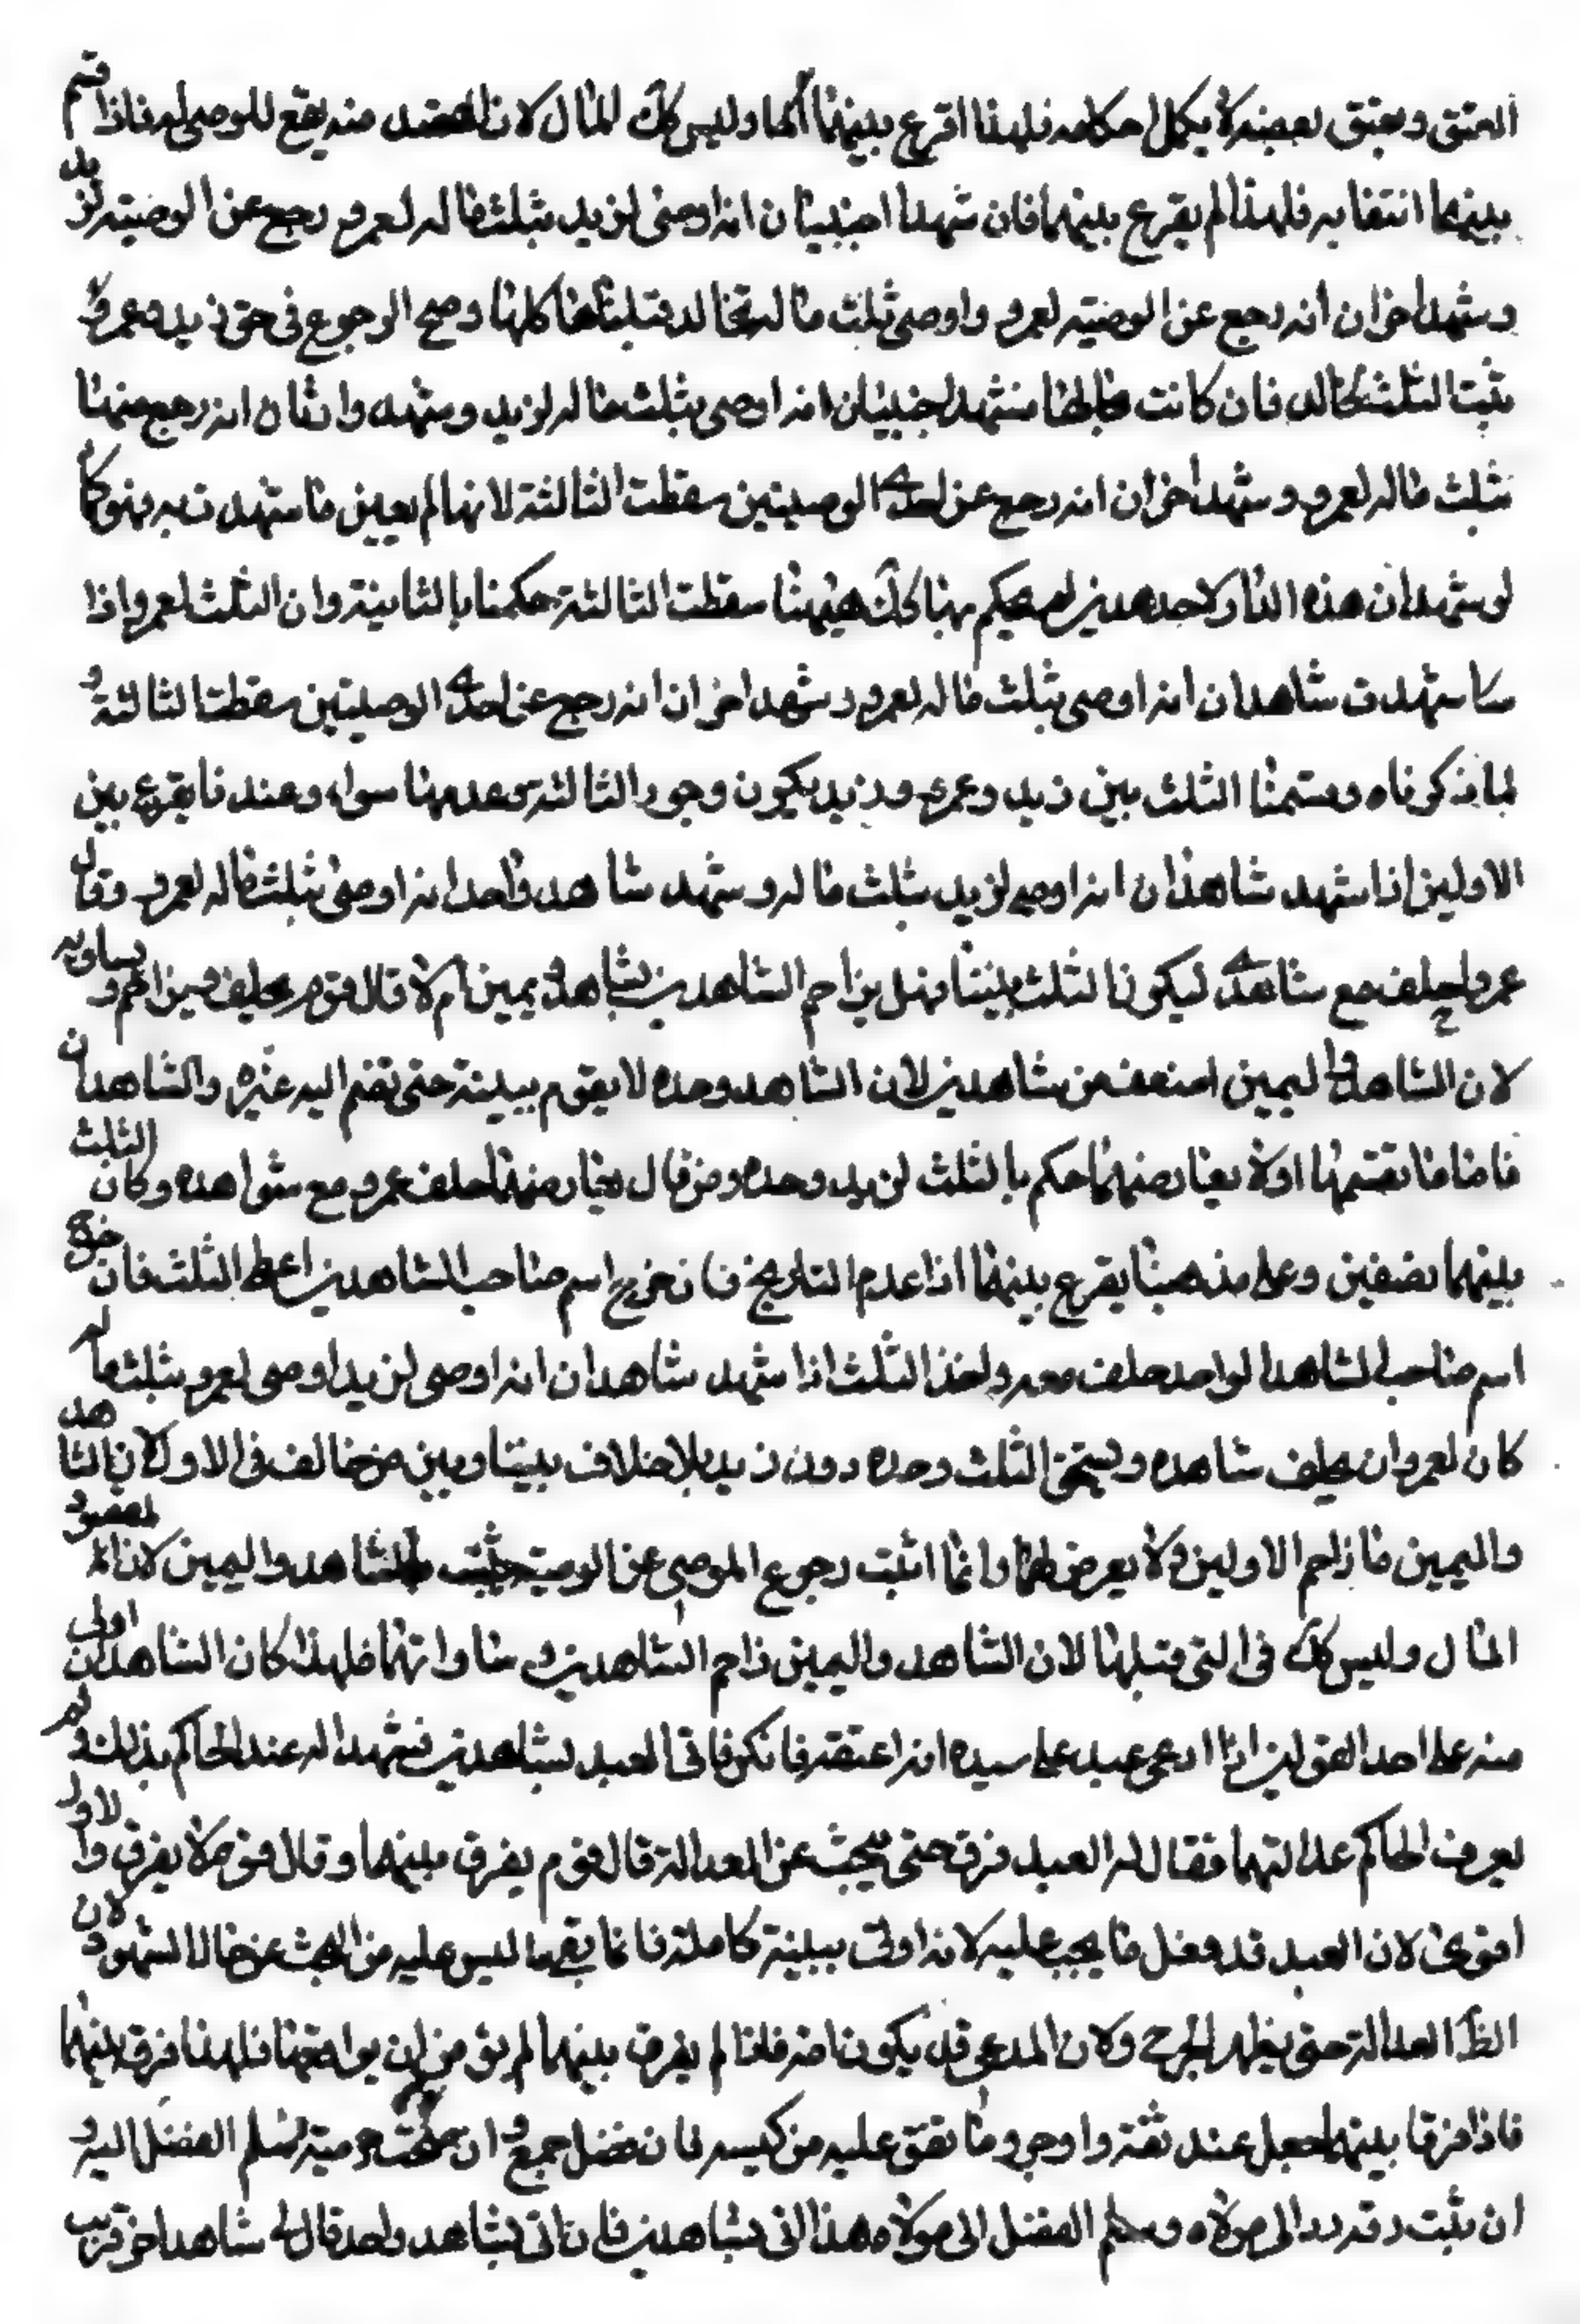 العتق ويعتق بعضه لا يكمل احكامه فلهذا اقرع بينهما وليس كك المال لان القصد منه يقع للموصى له فاذا قسم
بينهما انتفعا به فلهذا لم يقرع بينهما فان شهد اجنبيان انه اوصى لزيد بثلث ماله لعمرو رجع عن الوصية لزيد
وشهد اخران انه رجع عن الوصية لعمرو واوصى بثلث ماله لخالد قبلناها كلها وصح الرجوع في حق زيد وعمرو و
يثبت الثلث لخالد فان كانت بحالها فشهد اجنبيان انه اوصى بثلث ماله لزيد وشهد اخران انه رجع منهما
بثلث ماله لعمرو وشهد اخران انه رجع عن احدى الوصيتين سقطت الثالثة لانها لم يعين ما شهدت به فهو كما
لو شهد ان هذه الدار لاحد هذين لم يحكم بها كك هيهنا سقطت الثالثة حكمنا بالثانية وان الثلث لعمرو اذا
شهدت شاهدان انه اوصى بثلث ماله لعمرو وشهد اخران انه رجع عن احدى الوصيتين سقطت الثالثة و
لما ذكرناه وقسمنا الثلث بين زيد وعمرو يكون وجود الثالثة وعدمها سواء وعندنا يقرع بين
الاولين اذا شهد شاهدان انه اوصى لزيد بثلث ماله وشهد شاهد واحد انه اوصى بثلث ماله لعمرو وقال
عمرو احلف مع شاهدي ليكون الثلث بيننا فهل يزاحم الشاهدين بشاهد ويمين ام لا قال قوم يحلف ويزاحم ويساويه
لان الشاهد واليمين اضعف من شاهدين لان الشاهد وحده لا يقوم ببينة حتى تضم اليه غيره والشاهدان
حكم بالثلث لزيد وحده ومن قال يعارضهما حلف عمرو مع شاهده وكان الثلث
بينهما نصفين وعلى مذهبنا يقرع بينهما اذا عدم التاريخ فان خرج اسم صاحب الشاهدين اعطي الثلث فان خرج
اسم صاحب الشاهد الواحد حلف معه واخذ الثلث اذا شهد شاهدان انه اوصى لزيد اوصى لعمرو بثلث ماله
كان لعمرو ان يحلف شاهده ويستحق الثلث وحده دون زيد بلا خلاف بيننا وبين من خالف في الاولة لان الشاهد
واليمين ما زاحم الاولين ولا يعرض لهما وانما اثبت رجوع الموصى عن الوصية بالشاهد واليمين لان المقصود
المال وليس كك في التي قبلها لان الشاهد واليمين زاحم الشاهدين وساواتهما فلهذا كان الشاهدان اولى
منه على احد القولين اذا ادعى عبد على سيده انه اعتقه فانكر فاتى العبد بشاهدين فشهدا له عند الحاكم بذلك ولم
يعرف الحاكم عدالتهما فقال له العبد فرق حتى يبحث عن العدالة قال قوم يفرق بينهما وقال قوم لا يفرق والاول
اقوى لان العبد قد فعل ما يجب عليه لانه اتى ببينة كاملة فانما بقي ما ليس عليه من البحث عن حال الشهود ولان
الظ العدالة حتى يظهر الجرح ولان المدعى قد يكون امة فاذا لم يفرق بينهما لم يؤمن ان يواقعها فلهذا فرق بينهما
فاذا فرقا بينهما جعل عند ثقة واوجر وما نفق عليه من كسبه فان فضل جمع و ان تسلم الفضل اليه و
ان ثبت رقه رد الى مولاه وسلم الفضل الى مولاه هذا اذا اتى بشاهدين فان اتى بشاهد واحد قال لي شاهد اخر قريب